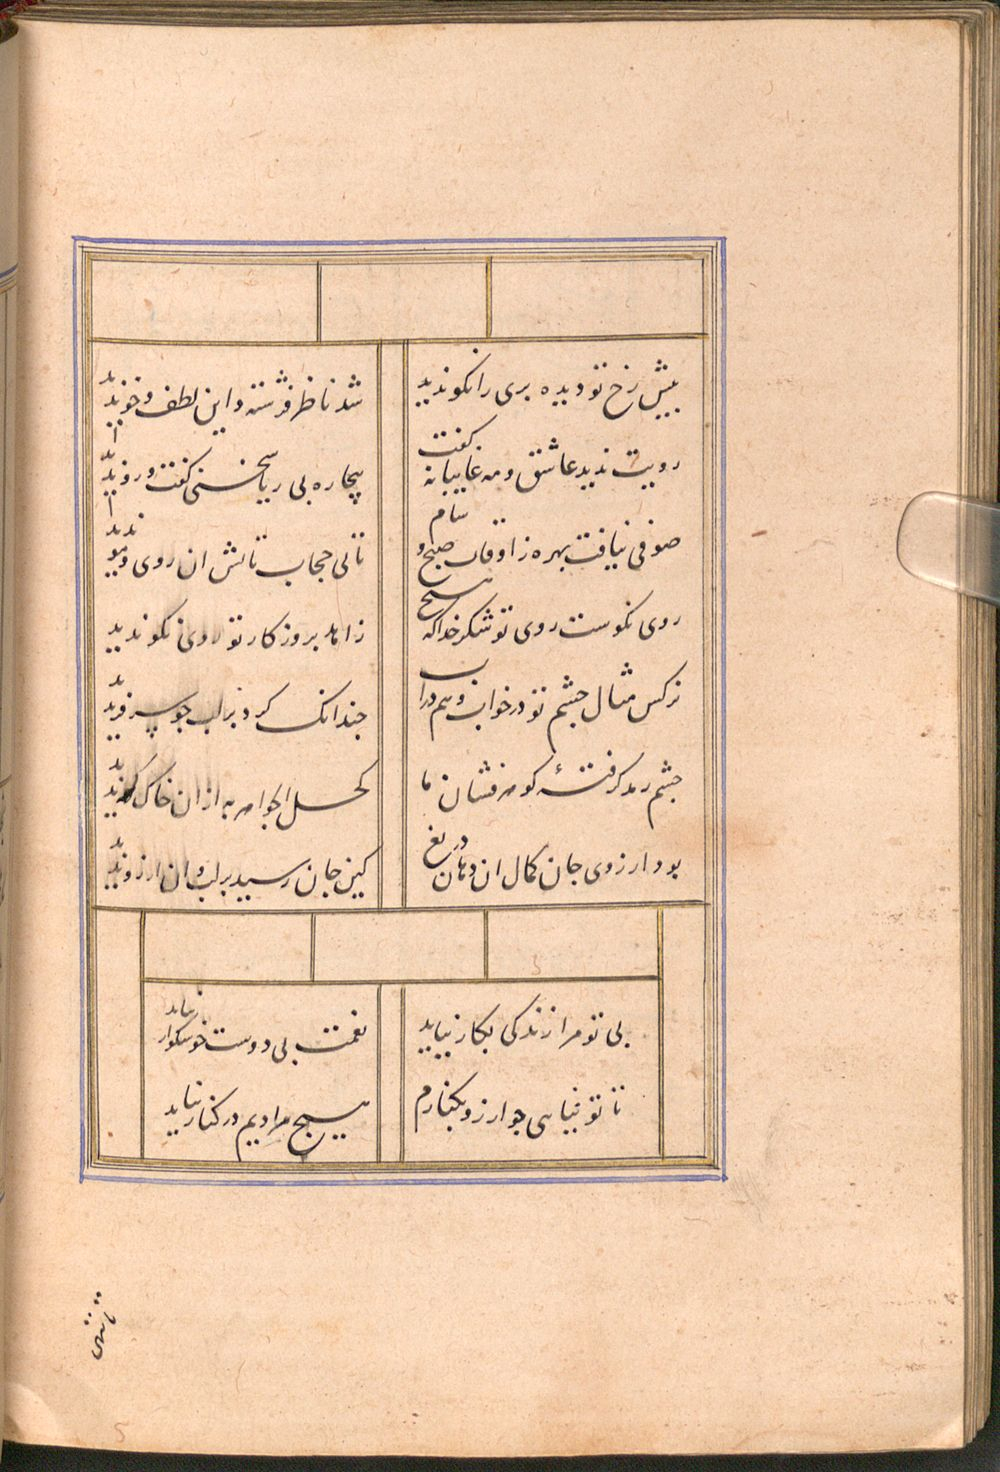 پیش رخ تو دیده پری را نکو ندید
شد ناظر فرشته و این لطف و خو ندید
رویت ندید عاشق و مه غایبانه گفت
بیچاره بی ریا سخنی گفت و رو ندید
صوفی نیافت بهره ز اوقات صبح و شام
تا بی حجاب تابش ان روی و مو ندید
روی نکوست روی تو شکر خدا که هیچ
زاهد بروزکار تو روی نکو ندید
نرکس مثال چشم تو در خواب و هم در اب
چندانک کرد بر لب جو سر فرو ندید
چشم رمد کرفته کوهر فشان ما
کحل الجواهر به از ان خاک کو ندید
بود ارزوی جان کمال ان دهان دریغ
کین جان رسید بر لب و ان ارزو ندید
بی تو مرا زندکی بکار نیاید
نعمت بی دوست خوشکوار نیاید
تا تو نیایی جو ارزو بکنارم
هیچ مرادیم در کنار نیاید